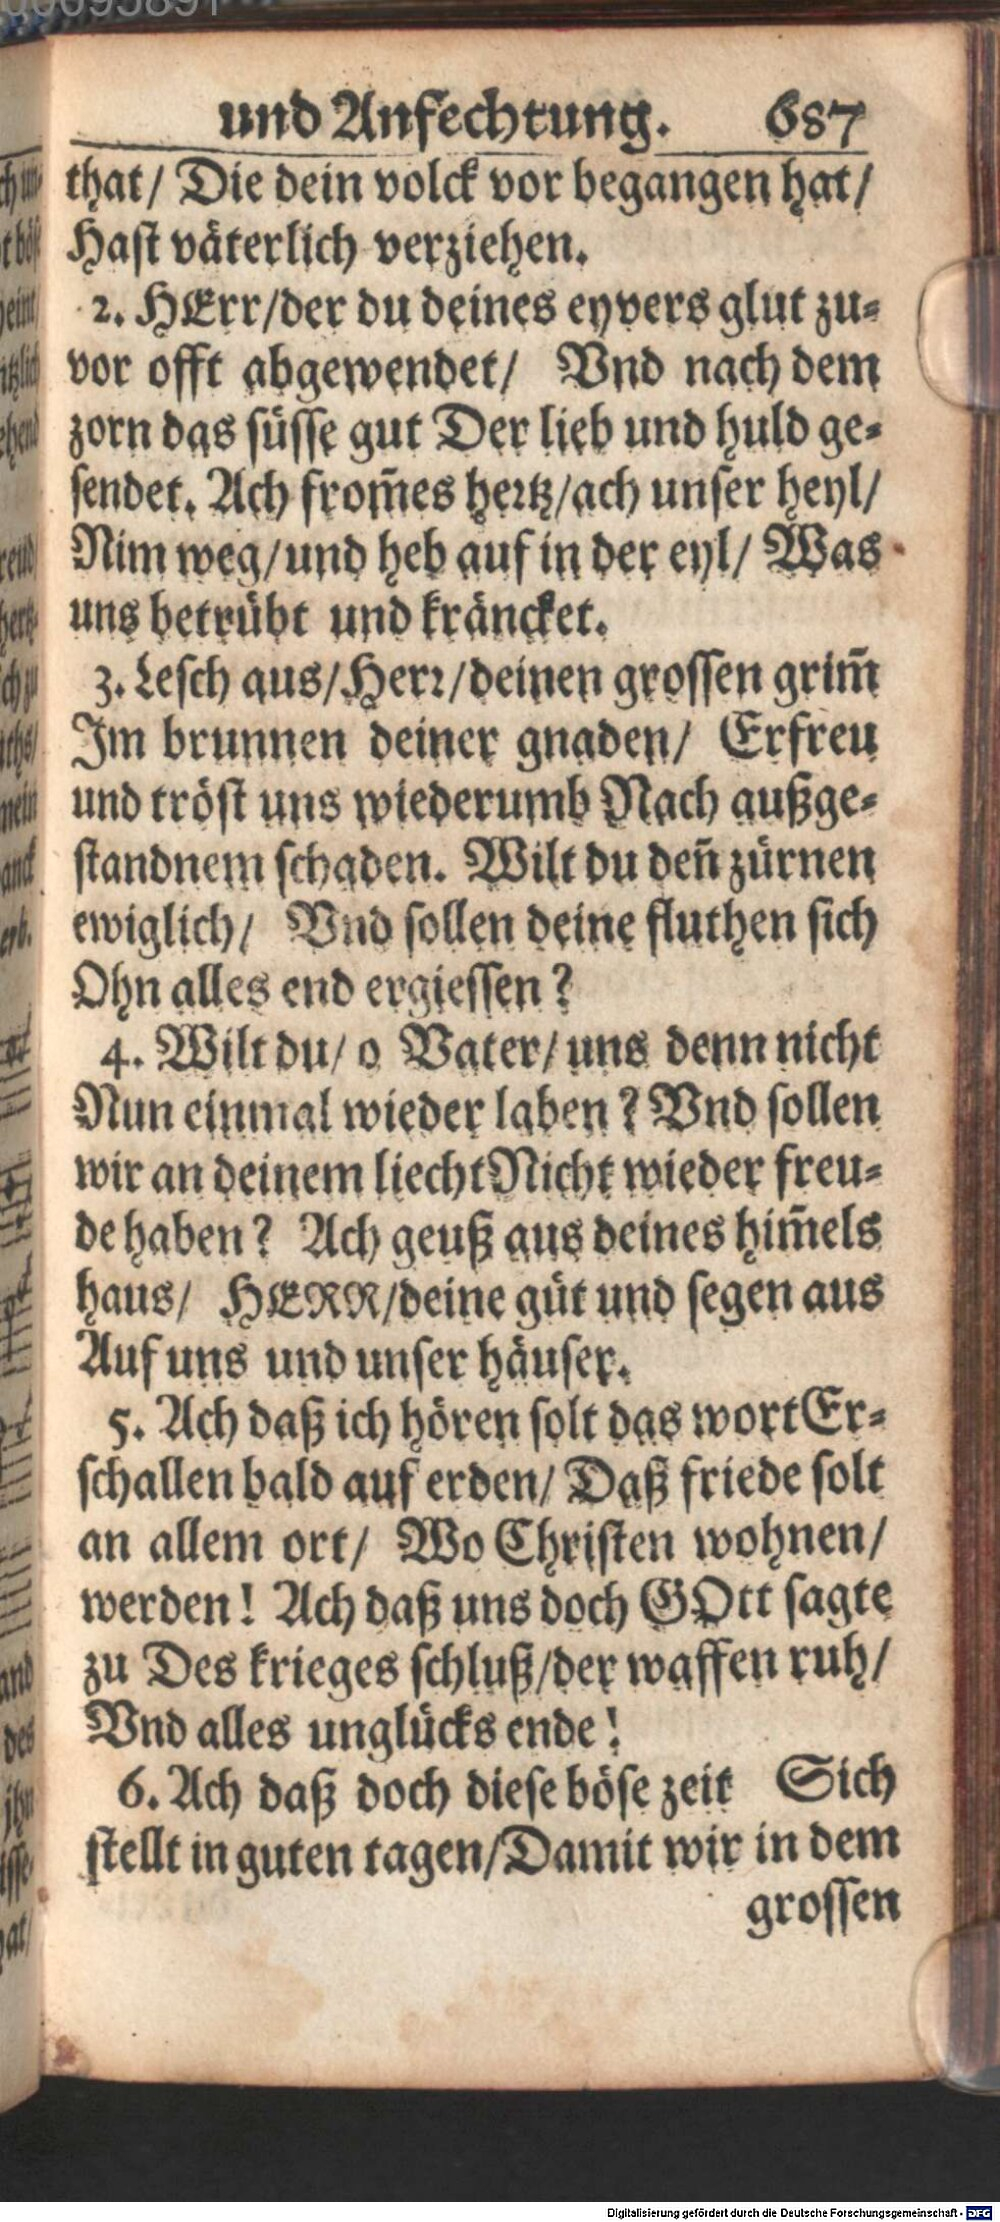 und Anfechtung. 687
that/ Die dein volck vor begangen hat/
Hast väterlich verziehen.
2. HErr/der du deines eyvers glut zu-
vor offt abgewendet/ Vnd nach dem
zorn das süsse gut Der lieb und huld ge-
sendet. Ach from̃es hertz/ach unser heyl/
Nim weg/und heb auf in der eyl/ Was
uns betrübt und kräncket.
3. Lesch aus/Herr/deinen grossen grim̃
Im brunnen deiner gnaden/ Erfreu
und tröst uns wiederumb Nach außge-
standnem schaden. Wilt du deñ zürnen
ewiglich/ Vnd sollen deine fluthen sich
Ohn alles end ergiessen?
4. Wilt du/ o Vater/uns denn nicht
Nun einmal wieder laben? Vnd sollen
wir an deinem liecht Nicht wieder freu-
de haben? Ach geuß aus deines him̃els
haus/ HERR/deine güt und segen aus
Auf uns und unser häuser.
5. Ach daß ich hören solt das wort Er-
schallen bald auf erden/ Daß friede solt
an allem ort/ Wo Christen wohnen/
werden! Ach daß uns doch GOtt sagte
zu Des krieges schluß/der waffen ruh/
Vnd alles unglücks ende!
6. Ach daß doch diese böse zeit Sich
stellt in guten tagen/Damit wir in dem
grossen
Digitalisierung gefördert durch die Deutsche Forschungsgemeinschaft - DFG